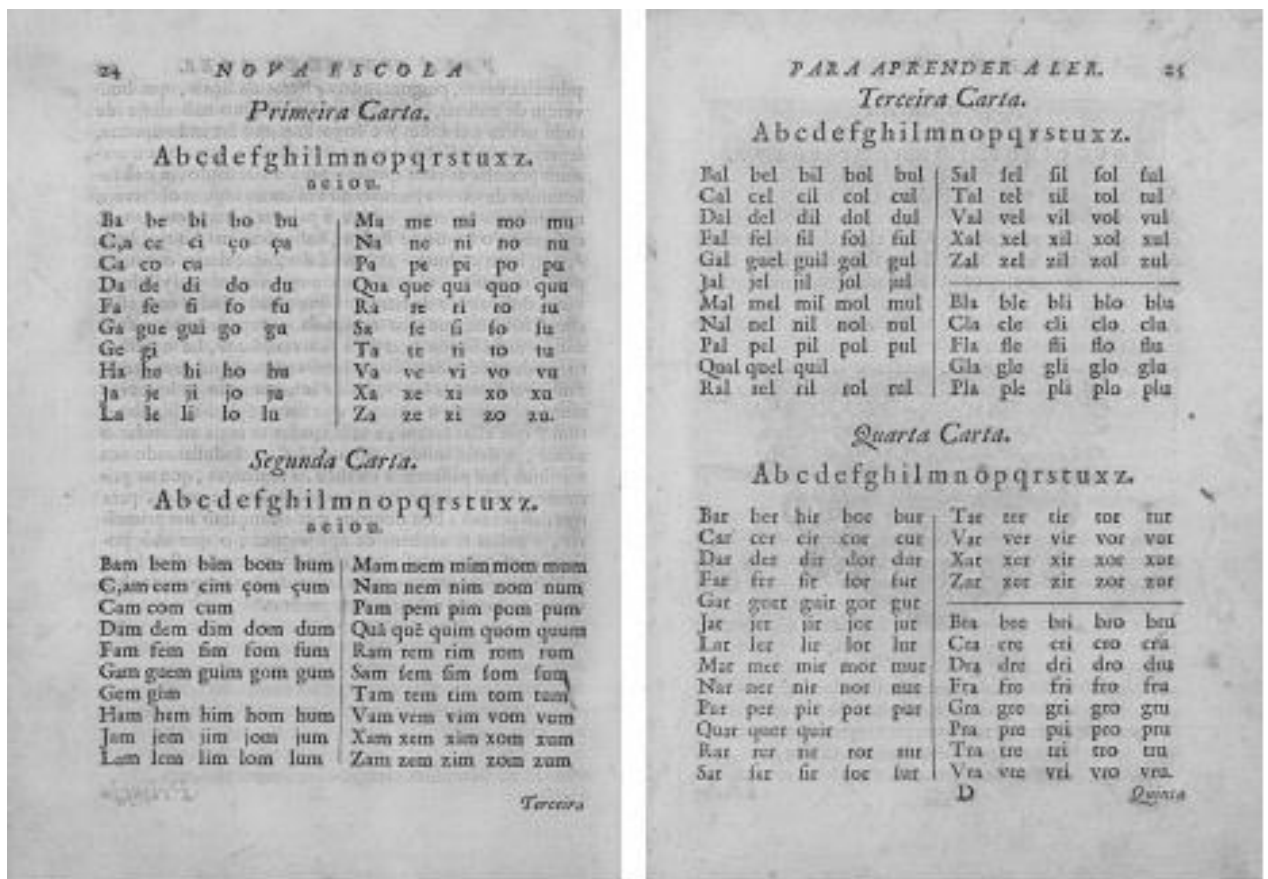 24 NOVA ESCOLA
Primeira Carta.
Abcdefghilmnopqrstuxz.
aeiou.
Ba be bi bo bu
C,a ce ci ço çu
Ca co cu
Da de di do du
Fa fe fi fo fu
Ga gue gui go gu
Ge gi
Ha he hi ho hu
Ja je ji jo ju
La le li lo lu
Ma me mi mo mu
Na ne ni no nu
Pa pe pi po pu
Qua que qui quo quu
Ra re ri ro ru
Sa ſe ſi ſo ſu
Ta te ti to tu
Va ve vi vo vu
Xa xe xi xo xu
Za ze zi zo zu.
Segunda Carta.
Abcdefghilmnopqrstuxz.
aeiou.
Bam bem bim bom bum
C,am cem cim çom çum
Cam com cum
Dam dem dim dom dum
Fam fem fim fom fum
Gam guem guim gom gum
Gem gim
Ham hem him hom hum
Jam jem jim jom jum
Lam lem lim lom lum
Mam mem mim mom mum
Nam nem nim nom num
Pam pem pim pom pum
Quã quẽ quim quom quum
Ram rem rim rom rum
Sam ſem ſim ſom ſum
Tam tem tim tom tum
Vam vem vim vom vum
Xam xem xim xom xum
Zam zem zim zom zum
Terceira
PARA APRENDER A LER. 25
Terceira Carta.
Abcdefghilmnopqrstuxz.
Bal bel bil bol bul
Cal cel cil col cul
Dal del dil dol dul
Fal fel fil fol ful
Gal guel guil gol gul
Jal jel jil jol jul
Mal mel mil mol mul
Nal nel nil nol nul
Pal pel pil pol pul
Qual quel quil
Ral rel ril rol rul
Sal ſel ſil ſol ſul
Tal tel til tol tul
Val vel vil vol vul
Xal xel xil xol xul
Zal zel zil zol zul
Bla ble bli blo blu
Cla cle cli clo clu
Fla fle fli flo flu
Gla gle gli glo glu
Pla ple pli plo plu
Quarta Carta.
Abcdefghilmnopqrstuxz.
Bar ber bir bor bur
Car cer cir cor cur
Dar der dir dor dur
Far fer fir for fur
Gar guer guir gor gur
Jar jer jir jor jur
Lar ler lir lor lur
Mar mer mir mor mur
Nar ner nir nor nur
Par per pir por pur
Quar quer quir
Rar rer rir ror rur
Sar ſer ſir ſor ſur
Tar ter tir tor tur
Var ver vir vor vur
Xar xer xir xor xur
Zar zer zir zor zur
Bra bre bri bro bru
Cra cre cri cro cru
Dra dre dri dro dru
Fra fre fri fro fru
Gra gre gri gro gru
Pra pre pri pro pru
Tra tre tri tro tru
Vra vre vri vro vru.
D Quinta